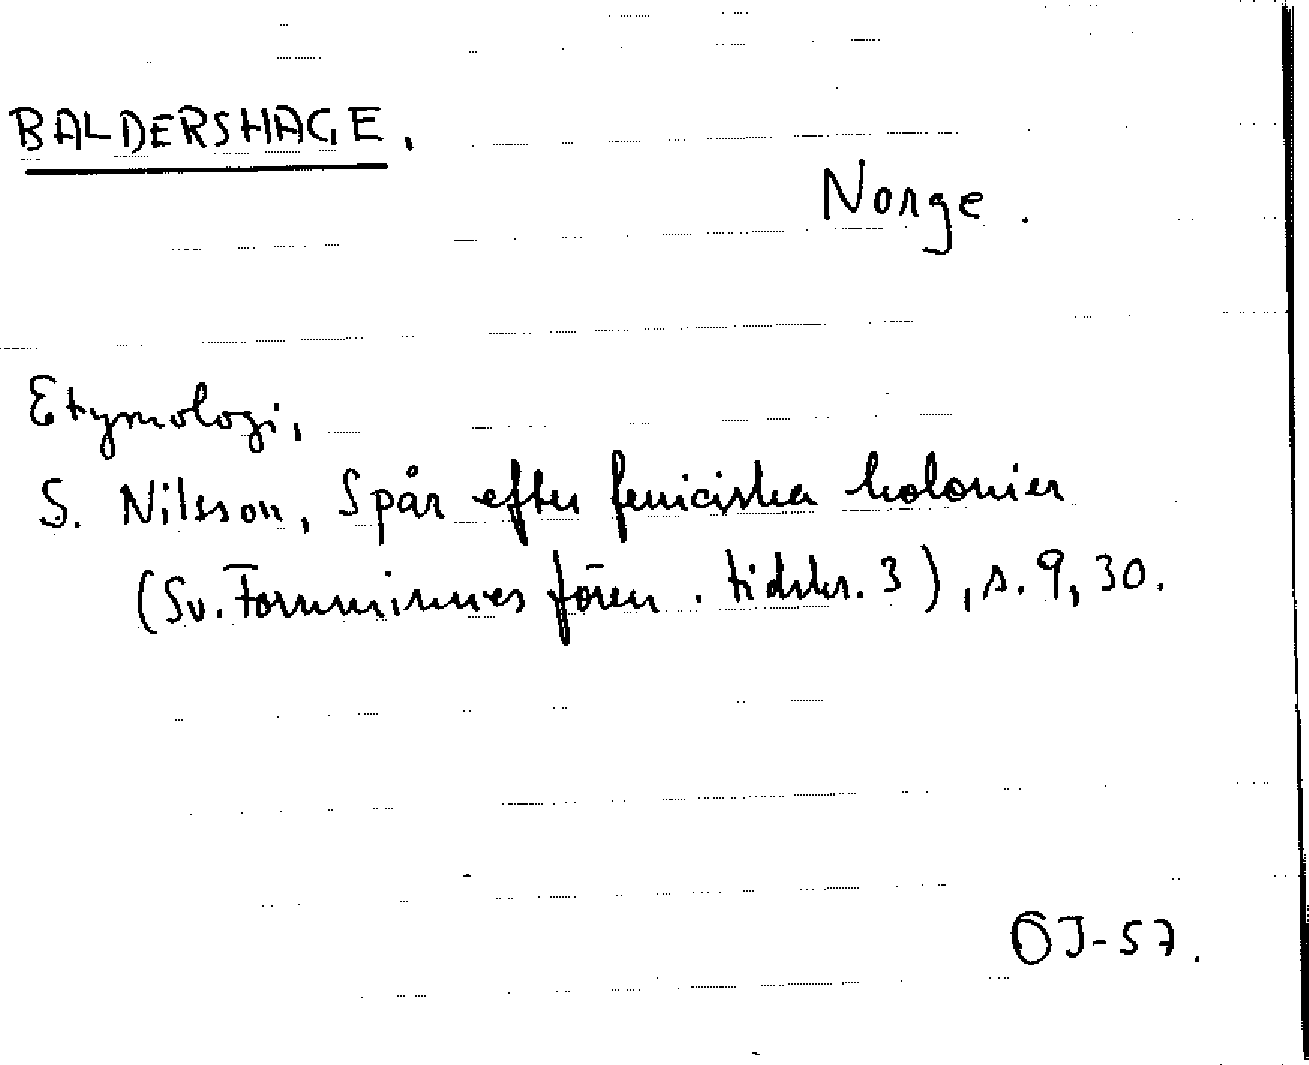 BALDERSHAGE.
Norge.
Etymologi,
S. Nilsson, Spår efter feniciska kolonier
(Sv. Fornminnes fören. tidskr. 3), s. 9, 30.
ÖJ-57.